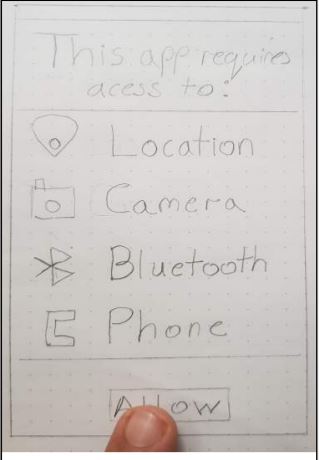 This app requires
acess to:
Location
Camera
Bluetooth
Phone
Allow